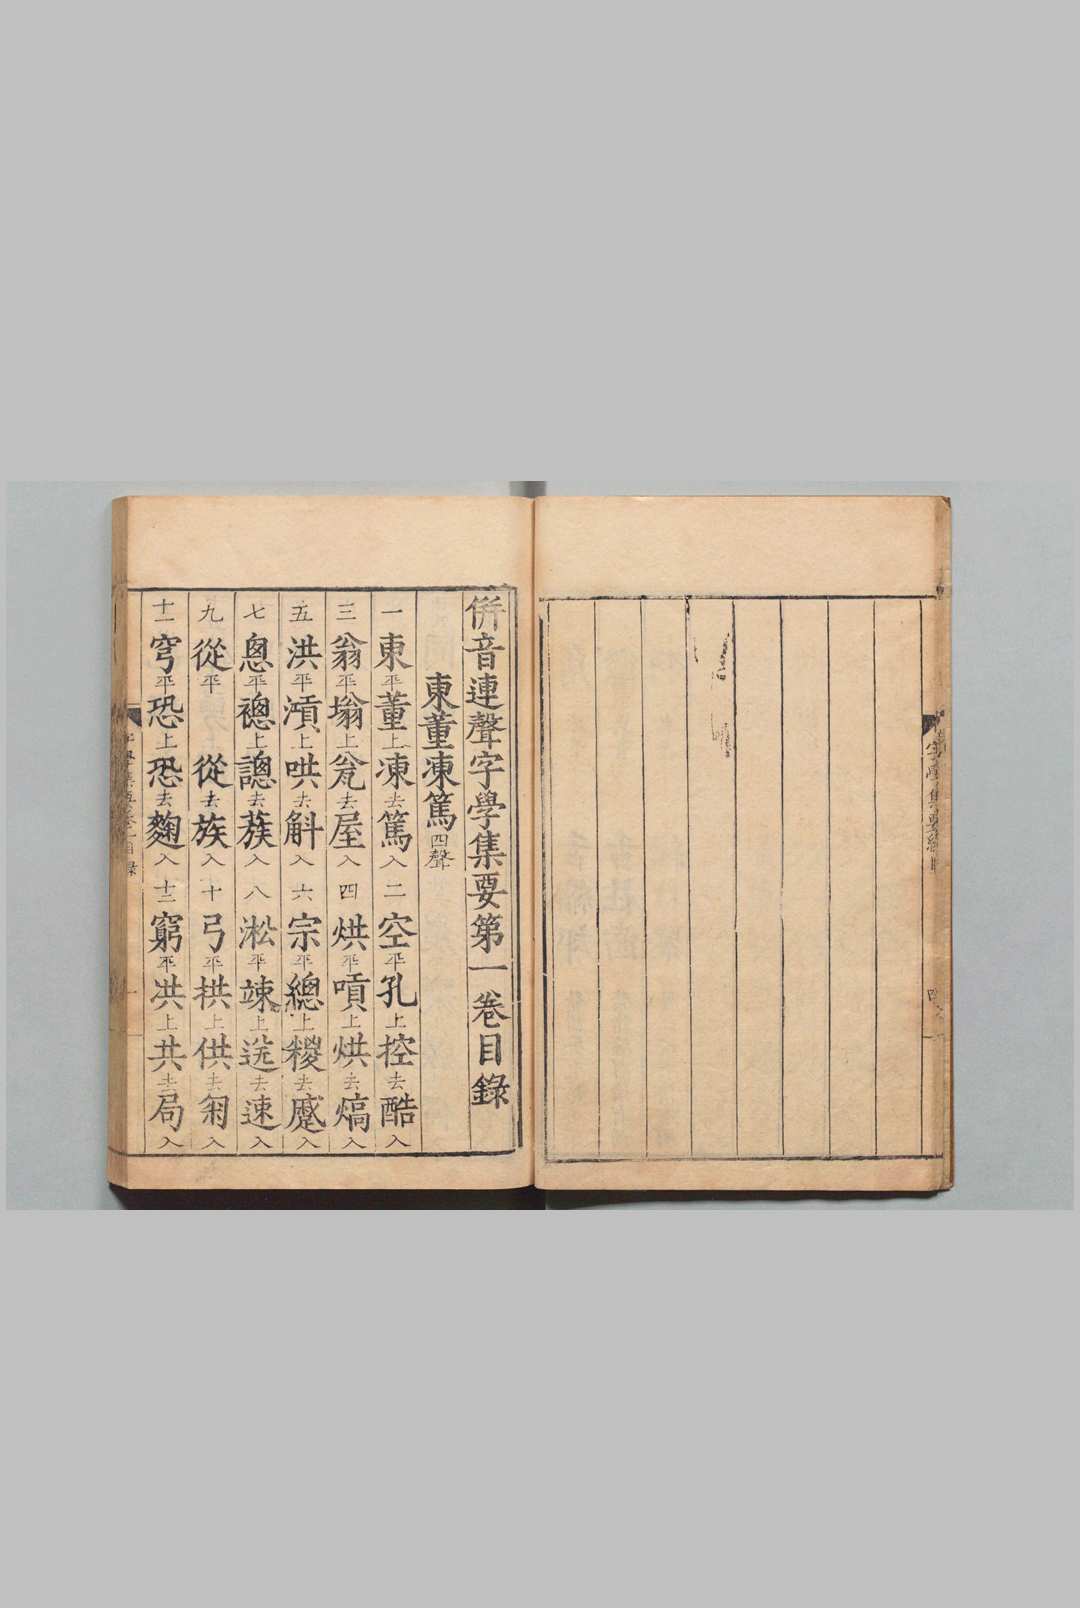 併音連聲字學集要第一卷目錄
東董凍篤四聲
一東平董上凍去篤入二空平孔上控去酷入
三翁平塕上瓮去屋入四烘平嗊上烘去熇入
五洪平澒上哄去斛入六宗平總上糉去蹙入
七悤平禭上謥去蔟入八淞平竦上送去速入
九從平從去族入十弓平拱上供去匊入
十一穹平恐上恐去麴入十二窮平洪上共去局入